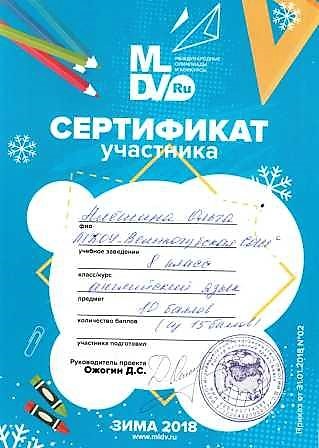 MLDV.Ru
МЕЖДУНАРОДНЫЕ
ОЛИМПИАДЫ
И КОНКУРСЫ
СЕРТИФИКАТ
участника
Алешина Ольга
фио
МКОУ
учебное заведение
8 класс
класс/курс
английский язык
предмет
10 баллов
количество баллов (из 15 баллов)
участника подготовил
Руководитель проекта
Ожогин Д.С.
ЗИМА 2018
www.mldv.ru
Приказ от 31.01.2018 №02